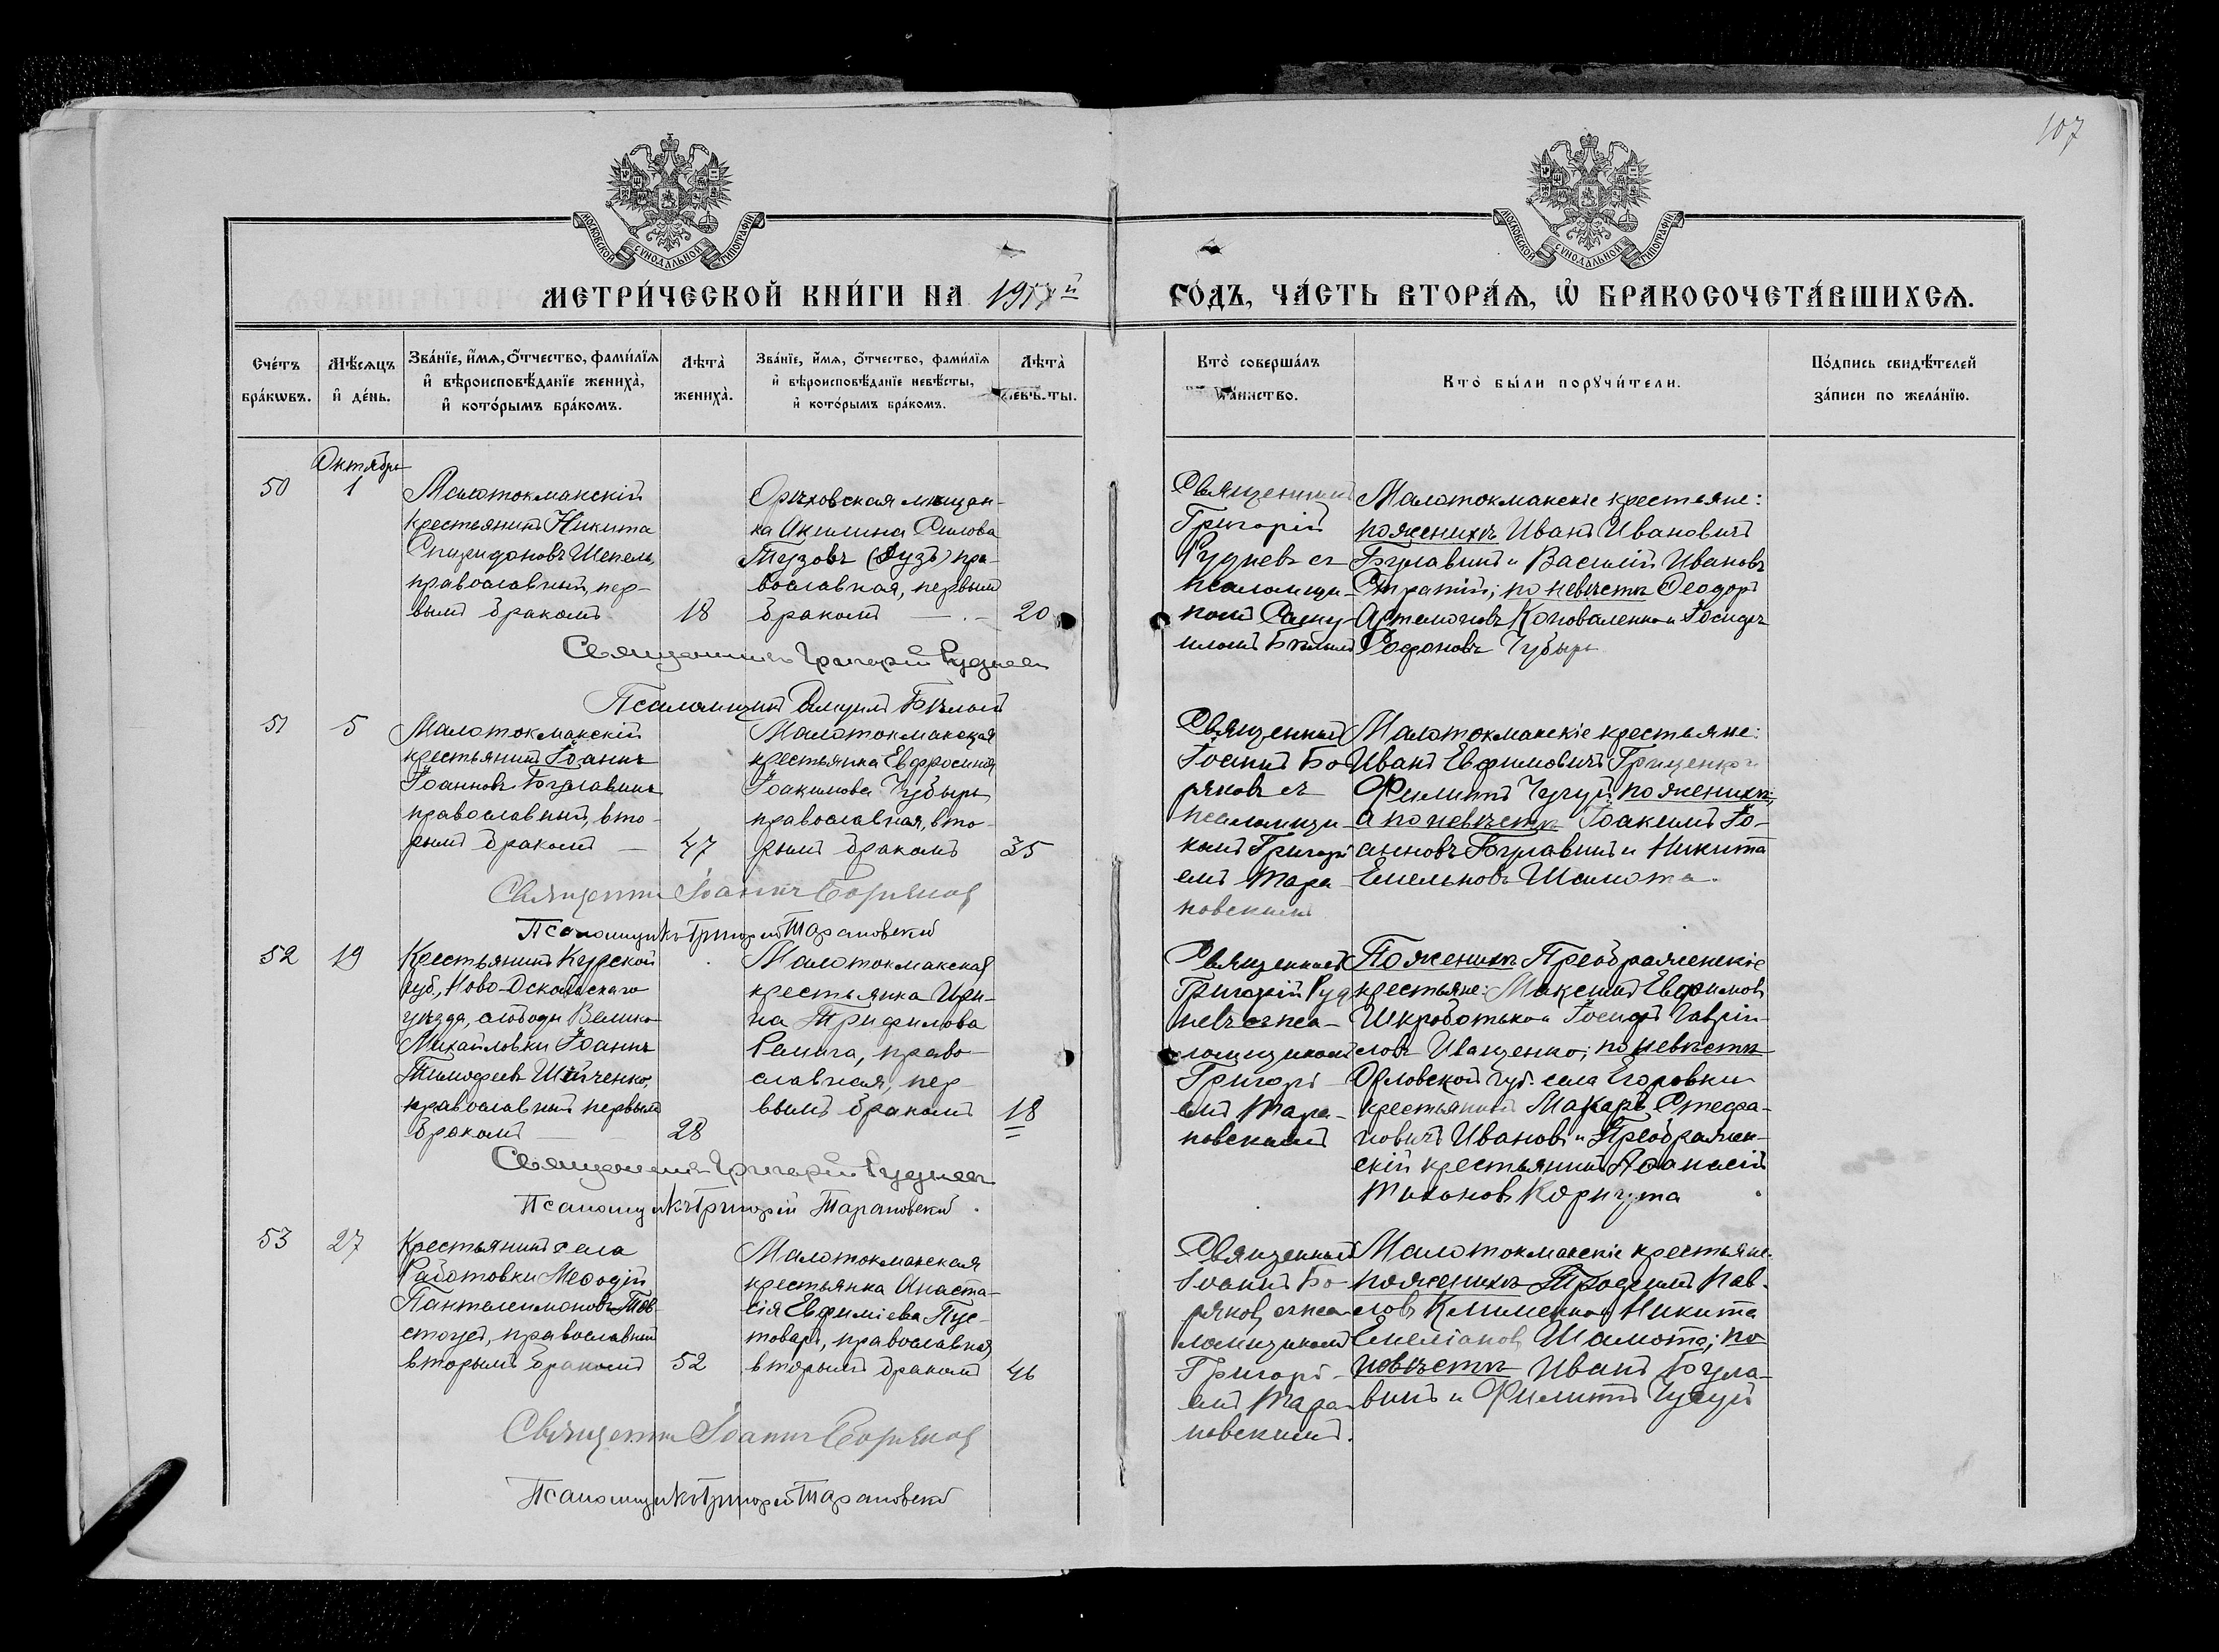 107
МОСКОВСКОЙ СѴНОДАЛЬНОЙ ТИПОГРАФІИ
МОСКОВСКОЙ СѴНОДАЛЬНОЙ ТИПОГРАФІИ
МЕТРИ́ЧЕСКОЙ КНИ́ГИ НА 1917й
ГО́ДЪ, ЧА́СТЬ ВТОРА́Ѧ, Ѿ БРАКОСОЧЕТА́ВШИХСѦ.
Сче́тъ бра́кѡвъ.
Мѣ́сѧцъ и҆ де́нь.
Зва́нїе, и҆́мѧ, о҆́тчество, фами́лїѧ
и҆ вѣроисповѣ́данїе жениха̀,
и҆ кото́рымъ бра́комъ.
Лѣта̀
жениха̀.
Зва́нїе, и҆́мѧ, о҆́тчество, фами́лїѧ
и҆ вѣроисповѣ́данїе невѣ́сты,
и҆ кото́рымъ бра́комъ.
Лѣта̀
невѣ́сты.
Кто̀ соверша́лъ
та́инство.
Кто̀ бы́ли порꙋчи́тели.
По́дпись свидѣ́телей
за́писи по жела́нїю.
Октябрь
50
1
Малотокмакскій
крестьянинъ Никита
Спиридоновъ Шепель,
православный, пер-
вымъ бракомъ
18
Орѣховская мѣщан-
ка Акилина Силова
Тузовъ (Тузъ) пра-
вославная, первымъ
бракомъ
20
Священникъ
Григорій
Руднев съ
псаломщи-
комъ
Бѣлымъ
Малотокмакскіе крестьяне:
по женихѣ Иванъ Ивановичъ
Буглавинъ и Василій Ивановъ
по невѣстѣ Ѳеодоръ
Артемоновъ Коноваленко и Іосифъ
Чубырь
Священникъ Григорій Руднев
Псаломщикъ Бѣлый
51
5
Малотокмакскій
крестьянинъ Іоаннъ
Іоанновъ Буглавинъ
православный, вто-
рымъ бракомъ
47
Малотокмакская
крестьянка Евфросинія
Іоакимова Чубырь,
православная, вто-
рымъ бракомъ
35
Священникъ
Іоаннъ Бо-
ряковъ съ
псаломщи-
комъ Григорі-
емъ Тара-
новскимъ
Малотокмакскіе крестьяне:
Иванъ Евфимовичъ Гриценко и
Филиппъ Чугуй по женихѣ,
а по невѣстѣ Іоакимъ Іо-
анновъ Буглавинъ и Никита
Емельновъ Шамота.
Священникъ Іоаннъ Боряковъ
Псаломщикъ Григорій Тарановскій
52
19
Крестьянинъ Курской
губ., Ново-Оскольскаго
уѣзда, слободы Велико-
Михайловки Іоаннъ
Тимофеевъ
православный первымъ
бракомъ
28
Малотокмакская
крестьянка Ири-
на Трифилова
православная, пер-
вымъ бракомъ
18
Священникъ
Григорій Руд-
невъ съ пса-
ломщикомъ
Григорі-
емъ Тара-
новскимъ
По женихѣ Преображенскіе
крестьяне: Максимъ Евфимовъ
Шкроботько и Іосифъ Гаврiи-
ловъ Иващенко; по невѣстѣ
Орловской губ. села Егоровки
крестьянинъ Макаръ Стефа-
новичъ Ивановъ и Преображен-
скій крестьянинъ Аѳанасій
Тихоновъ
Священникъ Григорій Руднев
Псаломщикъ Григорій Тарановскій
53
27
Крестьянинъ села
Работовки Меѳодій
Пантелеимоновъ Тов-
стоусъ, православный
вторымъ бракомъ
52
Малотокмакская
крестьянка Анаста-
сія Евфиміева Пус-
товаръ, православная,
вторымъ бракомъ
46
Священникъ
Іоаннъ Бо-
ряковъ съ пса-
ломщикомъ
Григорі-
емъ Тара-
новскимъ.
Малотокмакскіе крестьяне:
по женихѣ Трофимъ Пав-
ловъ Клименко и Никита
Емеліановъ Шамота; по
невѣстѣ Иванъ Бугла-
винъ и Филиппъ Чугуй
Священникъ Іоаннъ Боряковъ
Псаломщикъ Григорій Тарановскій